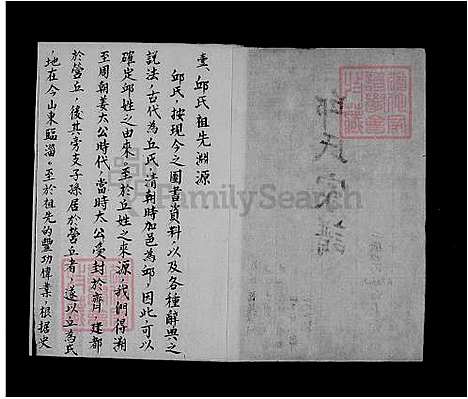 邱氏家譜
壹、邱氏祖先淵源
邱氏，按現今之圖書資料，以及各種辭典之
說法，古代為丘氏，清朝時加邑為邱，因此可以
確定邱姓之由來。至於丘姓之來源，我們得溯
至周朝姜太公時代，當時太公受封於齊，建都
於營丘，後其旁支子孫居於營丘者，遂以丘為氏
，地在今山東臨淄。至於祖先的豐功偉業，根據史
FamilySearch